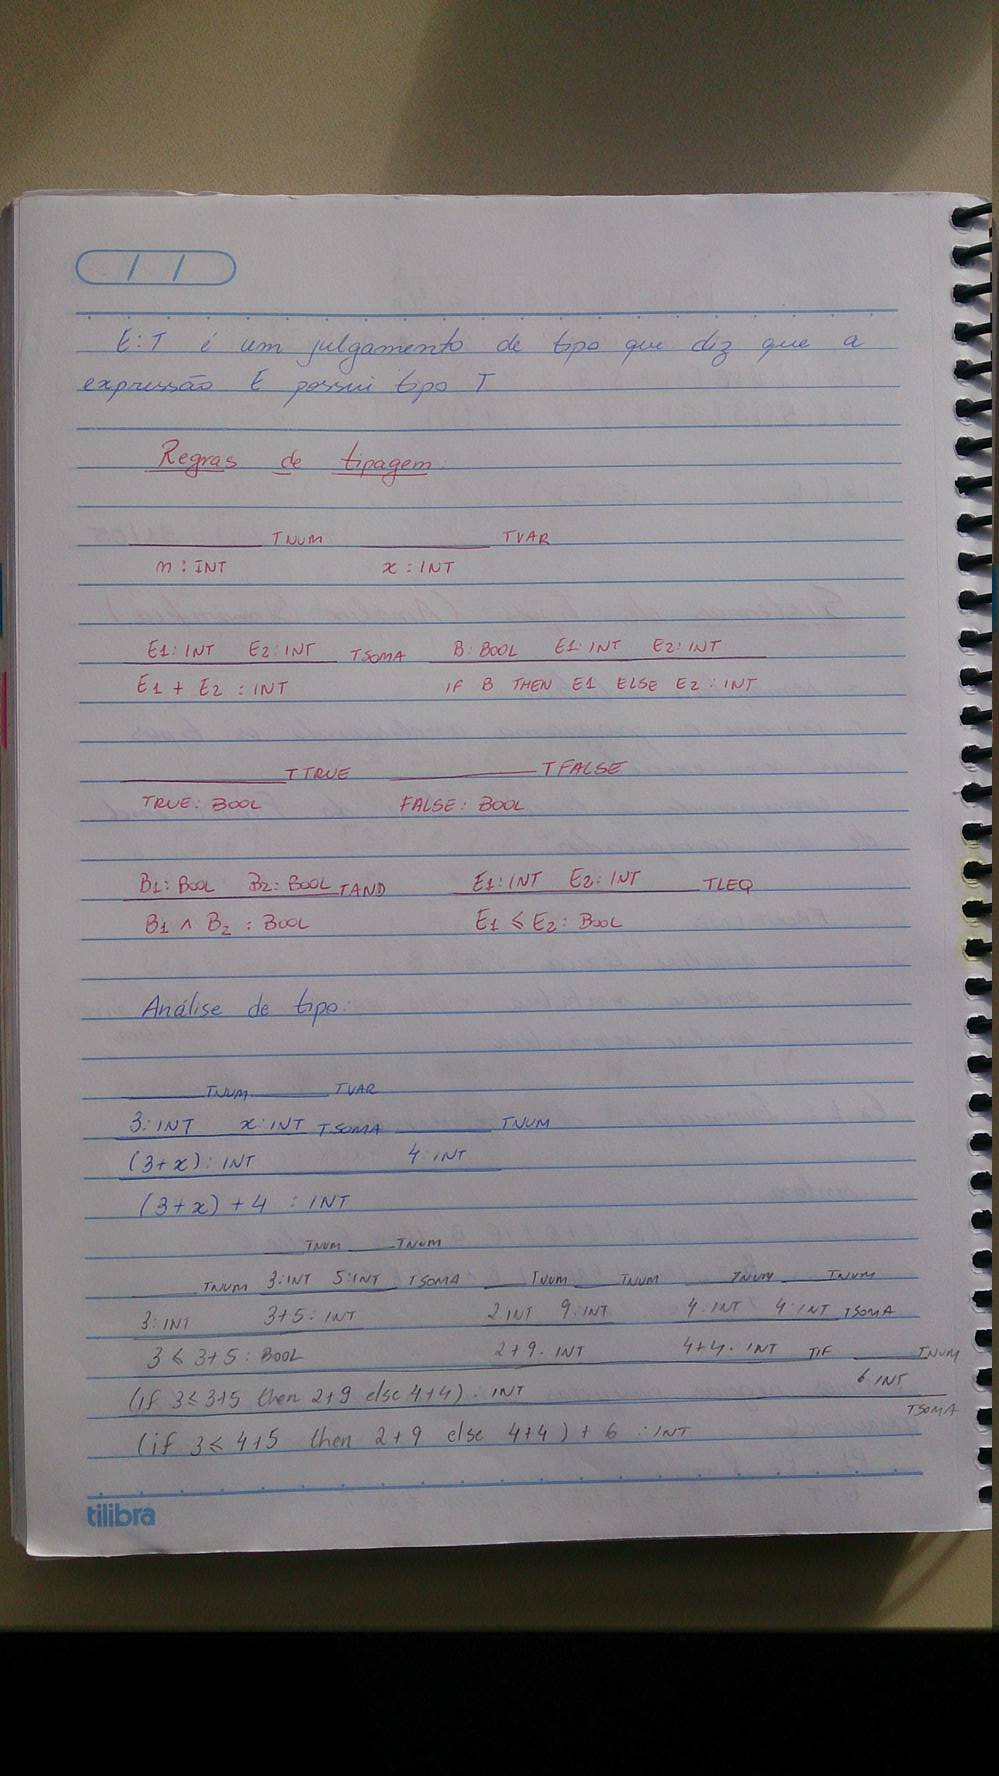 E:T é um julgamento de tipo que diz que a
expressão E possui tipo T
Regras de tipagem
TNUM TVAR
n : INT x : INT
E1: INT E2: INT TSOMA B: BOOL E1: INT E2: INT
E1 + E2 : INT IF B THEN E1 ELSE E2 : INT
TTRUE TFALSE
TRUE: BOOL FALSE: BOOL
B1: BOOL B2: BOOL TAND E1: INT E2: INT TLEQ
B1 ∧ B2 : BOOL E1 ≤ E2: BOOL
Análise de tipo:
TNUM TVAR
3: INT x: INT TSOMA TNUM
(3+x): INT 4: INT
(3+x) + 4 : INT
TNUM TNUM
TNUM 3: INT 5: INT TSOMA TNUM TNUM TNUM TNUM
3: INT 3+5: INT 2: INT 9: INT 4: INT 4: INT TSOMA
3 ≤ 3+5 : BOOL 2+9: INT 4+4: INT TIF TNUM
6: INT
(if 3 ≤ 3+5 then 2+9 else 4+4) : INT
TSOMA
(if 3 ≤ 4+5 then 2+9 else 4+4) + 6 : INT
tilibra